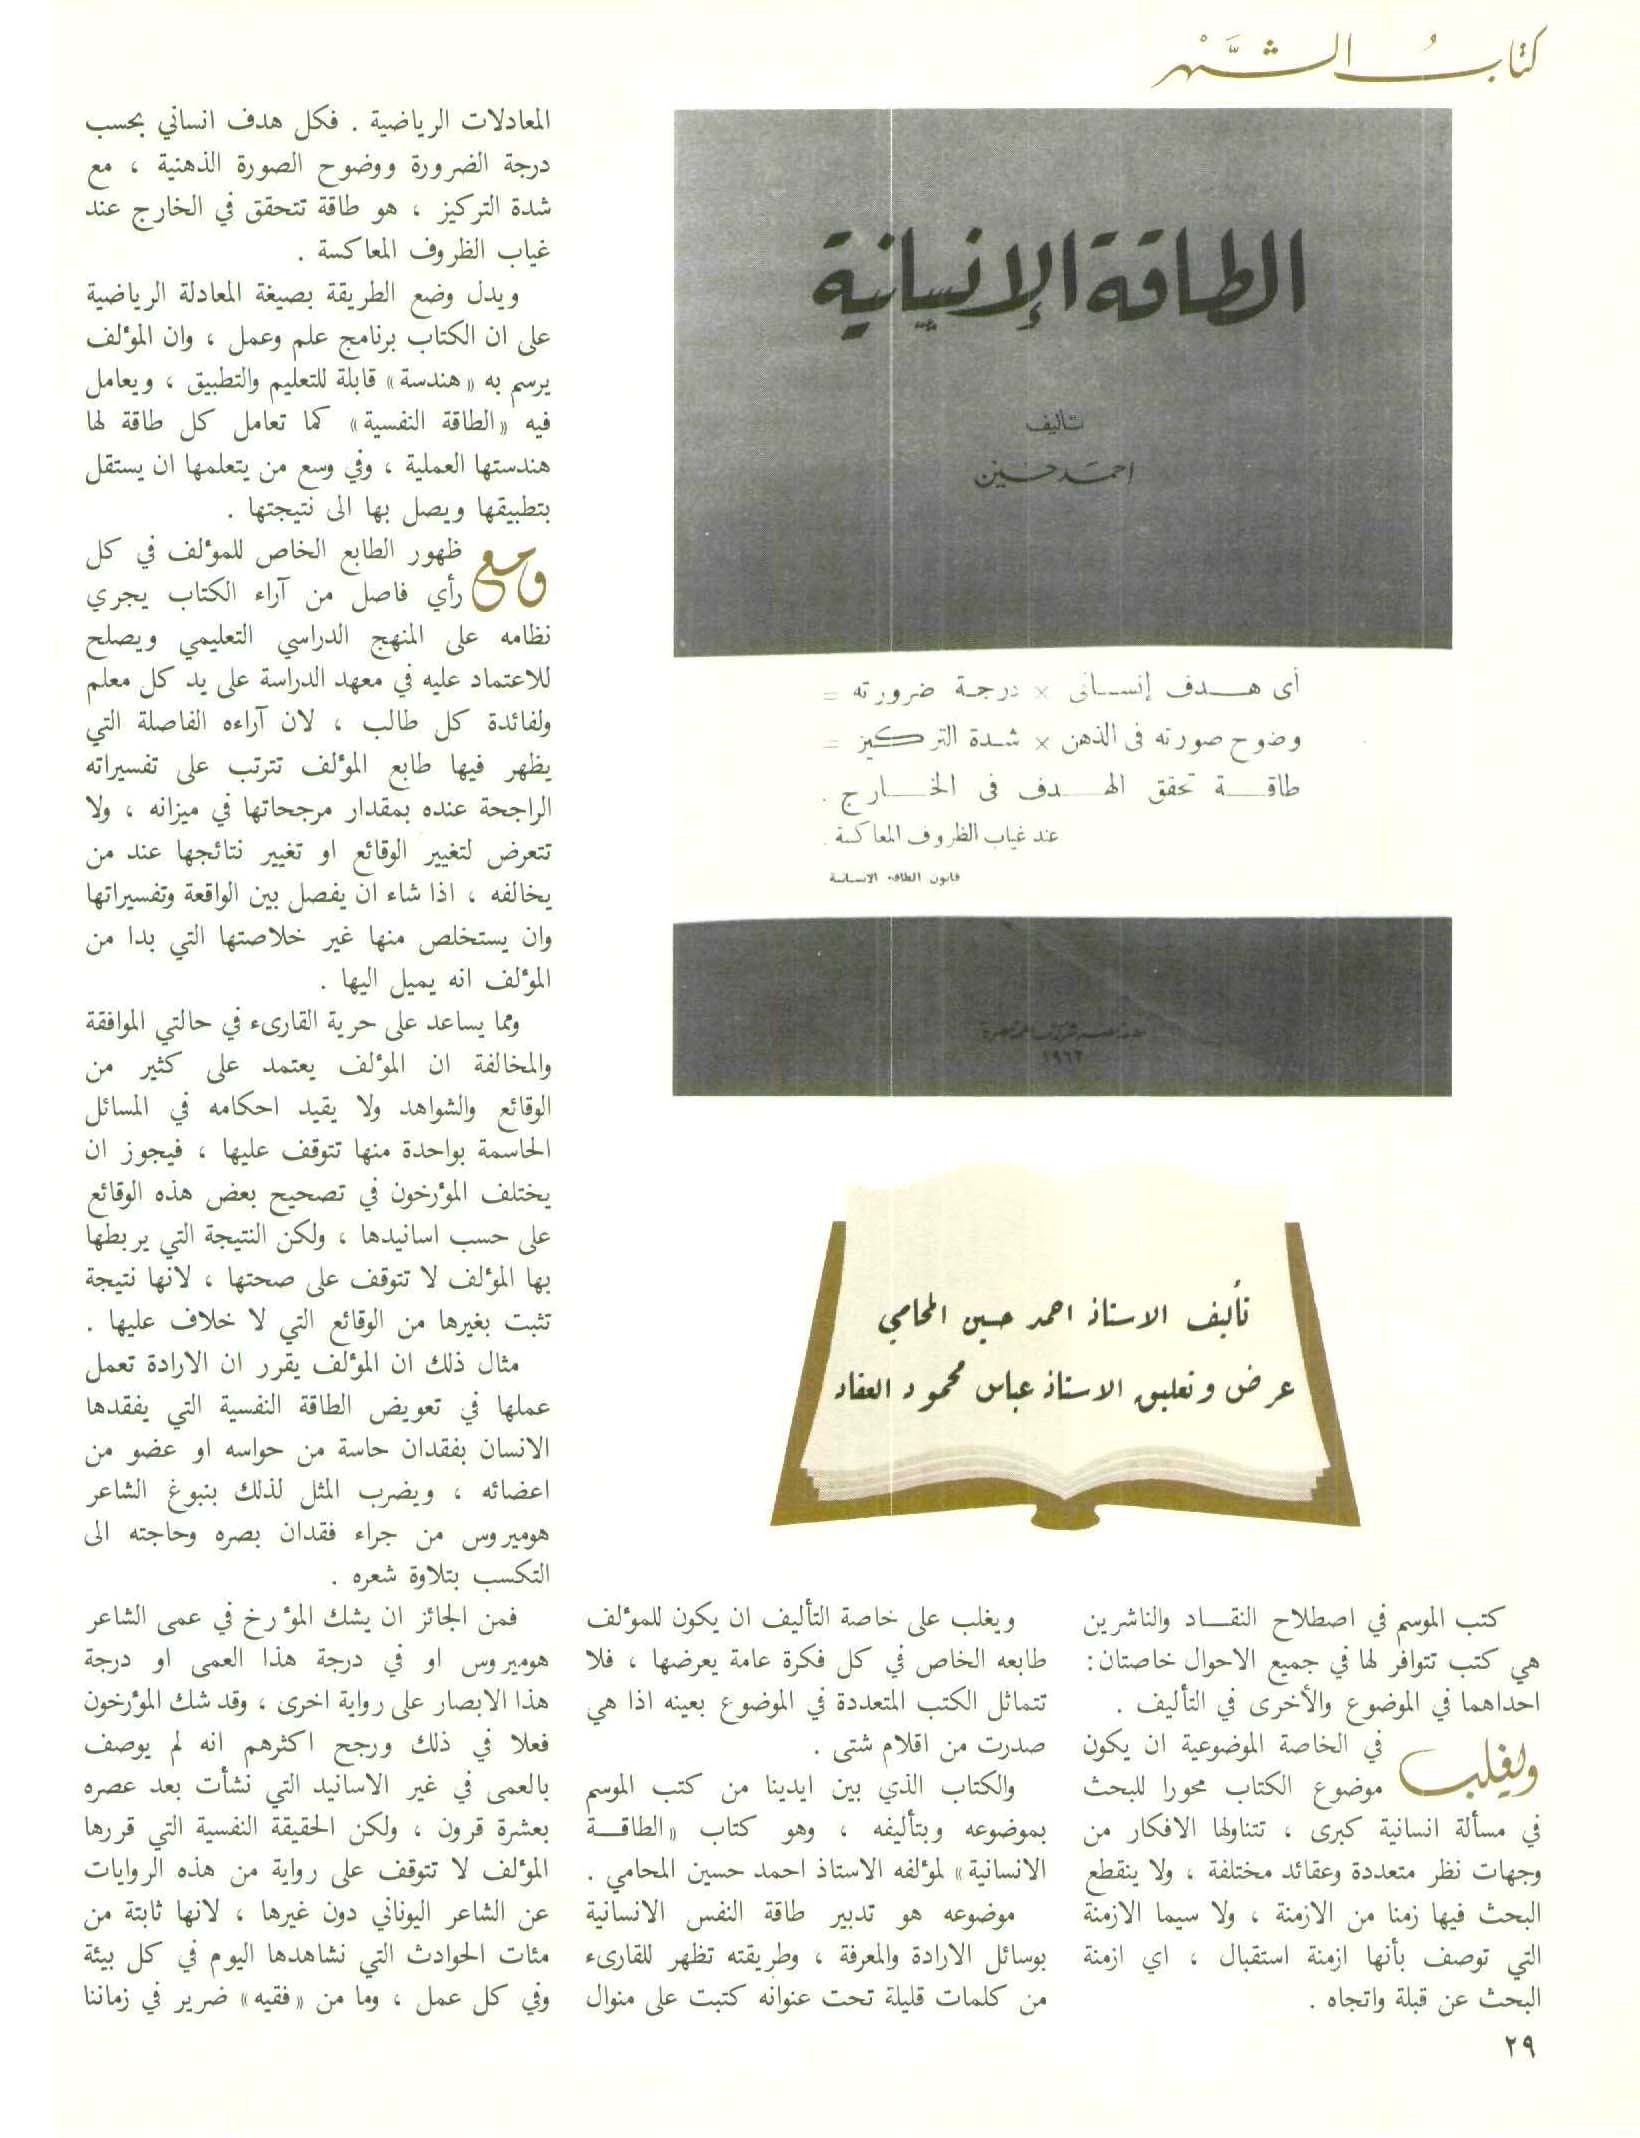 كتاب الشهر
الطاقة الإنسانية
تأليف
احمد حسين
أى هدف إنسانى × درجة ضرورته =
وضوح صورته فى الذهن × شدة التركيز =
طاقة تحقق الهدف فى الخارج .
عند غياب الظروف المعاكسة .
قانون الطاقة الانسانية
١٩٦٢
تأليف الاستاذ احمد حسين المحامي
عرض وتعليق الاستاذ عباس محمود العقاد
كتب الموسم في اصطلاح النقاد والناشرين
هي كتب تتوافر لها في جميع الاحوال خاصتان:
احداهما في الموضوع والأخرى في التأليف .
ويغلب في الخاصة الموضوعية ان يكون
موضوع الكتاب محورا للبحث
في مسألة انسانية كبرى ، تتناولها الافكار من
وجهات نظر متعددة وعقائد مختلفة ، ولا ينقطع
البحث فيها زمنا من الازمنة ، ولا سيما الازمنة
التي توصف بأنها ازمنة استقبال ، اي ازمنة
البحث عن قبلة واتجاه .
ويغلب على خاصة التأليف ان يكون للمؤلف
طابعه الخاص في كل فكرة عامة يعرضها ، فلا
تتماثل الكتب المتعددة في الموضوع بعينه اذا هي
صدرت من اقلام شتى .
والكتاب الذي بين ايدينا من كتب الموسم
بموضوعه وبتأليفه ، وهو كتاب «الطاقة
الانسانية» لمؤلفه الاستاذ احمد حسين المحامي .
موضوعه هو تدبير طاقة النفس الانسانية
بوسائل الارادة والمعرفة ، وطريقته تظهر للقارىء
من كلمات قليلة تحت عنوانه كتبت على منوال
المعادلات الرياضية . فكل هدف انساني بحسب
درجة الضرورة ووضوح الصورة الذهنية ، مع
شدة التركيز ، هو طاقة تتحقق في الخارج عند
غياب الظروف المعاكسة .
ويدل وضع الطريقة بصيغة المعادلة الرياضية
على ان الكتاب برنامج علم وعمل ، وان المؤلف
يرسم به «هندسة» قابلة للتعليم والتطبيق ، ويعامل
فيه «الطاقة النفسية» كما تعامل كل طاقة لها
هندستها العملية ، وفي وسع من يتعلمها ان يستقل
بتطبيقها ويصل بها الى نتيجتها .
ومع ظهور الطابع الخاص للمؤلف في كل
رأي فاصل من آراء الكتاب يجري
نظامه على المنهج الدراسي التعليمي ويصلح
للاعتماد عليه في معهد الدراسة على يد كل معلم
ولفائدة كل طالب ، لان آراءه الفاصلة التي
يظهر فيها طابع المؤلف تترتب على تفسيراته
الراجحة عنده بمقدار مرجحاتها في ميزانه ، ولا
تتعرض لتغيير الوقائع او تغيير نتائجها عند من
يخالفه ، اذا شاء ان يفصل بين الواقعة وتفسيراتها
وان يستخلص منها غير خلاصتها التي بدا من
المؤلف انه يميل اليها .
ومما يساعد على حرية القارىء في حالتي الموافقة
والمخالفة ان المؤلف يعتمد على كثير من
الوقائع والشواهد ولا يقيد احكامه في المسائل
الحاسمة بواحدة منها تتوقف عليها ، فيجوز ان
يختلف المؤرخون في تصحيح بعض هذه الوقائع
على حسب اسانيدها ، ولكن النتيجة التي يربطها
بها المؤلف لا تتوقف على صحتها ، لانها نتيجة
تثبت بغيرها من الوقائع التي لا خلاف عليها .
مثال ذلك ان المؤلف يقرر ان الارادة تعمل
عملها في تعويض الطاقة النفسية التي يفقدها
الانسان بفقدان حاسة من حواسه او عضو من
اعضائه ، ويضرب المثل لذلك بنبوغ الشاعر
هوميروس من جراء فقدان بصره وحاجته الى
التكسب بتلاوة شعره .
فمن الجائز ان يشك المؤرخ في عمى الشاعر
هوميروس او في درجة هذا العمى او درجة
هذا الابصار على رواية اخرى ، وقد شك المؤرخون
فعلا في ذلك ورجح اكثرهم انه لم يوصف
بالعمى في غير الاسانيد التي نشأت بعد عصره
بعشرة قرون ، ولكن الحقيقة النفسية التي قررها
المؤلف لا تتوقف على رواية من هذه الروايات
عن الشاعر اليوناني دون غيرها ، لانها ثابتة من
مئات الحوادث التي نشاهدها اليوم في كل بيئة
وفي كل عمل ، وما من «فقيه» ضرير في زماننا
٢٩